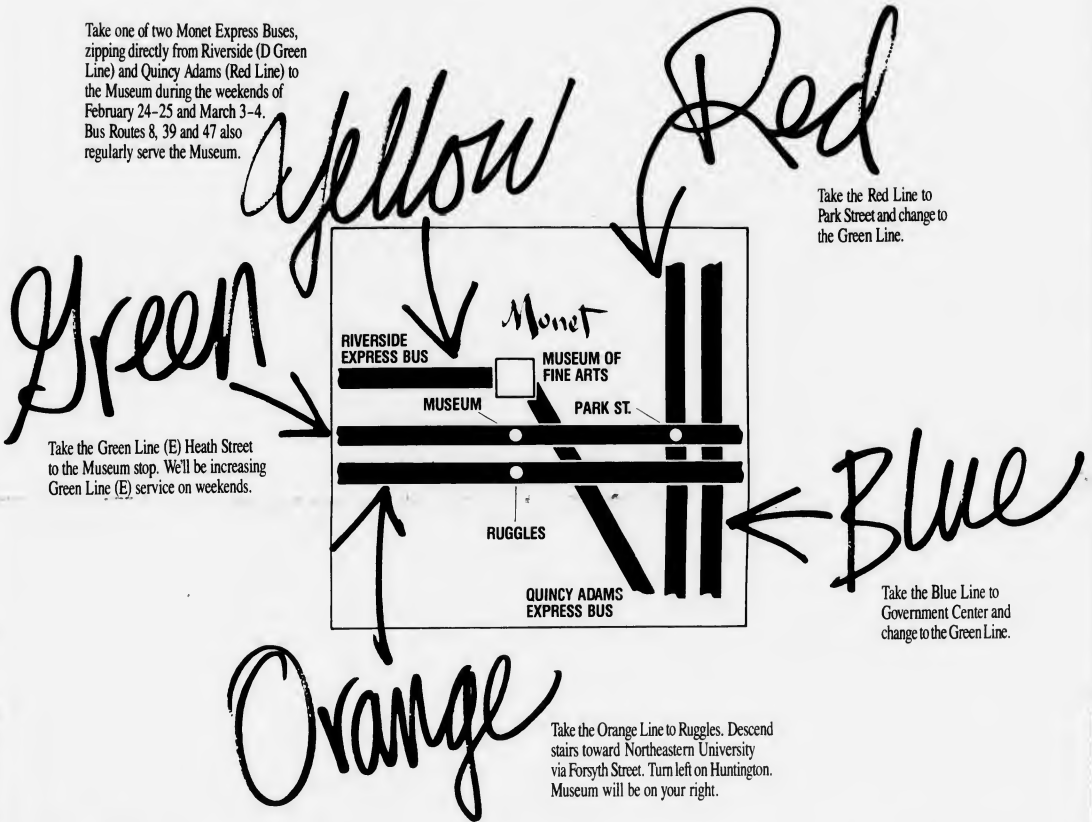 Take one of two Monet Express Buses,
zipping directly from Riverside (D Green
Line) and Quincy Adams (Red Line) to
the Museum during the weekends of
February 24-25 and March 3-4.
Bus Routes 8, 39 and 47 also
regularly serve the Museum.
Yellow
Red
Take the Red Line to
Park Street and change to
the Green Line.
Green
Take the Green Line (E) Heath Street
to the Museum stop. We'll be increasing
Green Line (E) service on weekends.
Monet
RIVERSIDE
EXPRESS BUS
MUSEUM OF
FINE ARTS
MUSEUM
PARK ST.
RUGGLES
QUINCY ADAMS
EXPRESS BUS
Blue
Take the Blue Line to
Government Center and
change to the Green Line.
Orange
Take the Orange Line to Ruggles. Descend
stairs toward Northeastern University
via Forsyth Street. Turn left on Huntington.
Museum will be on your right.